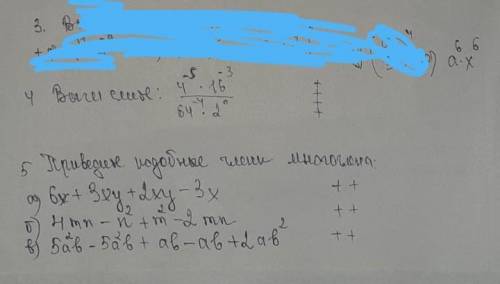 3. В
a⁶·x⁶
4 Вычислите: 4⁻⁵ · 16⁻³ / 64⁻⁴ · 2⁰
5 Приведите подобные члены многочлена:
а) 6x + 3xy + 2xy - 3x ++
б) 4mn - n² + m² - 2mn ++
в) 5a²b - 5a²b + ab - ab + 2ab² ++